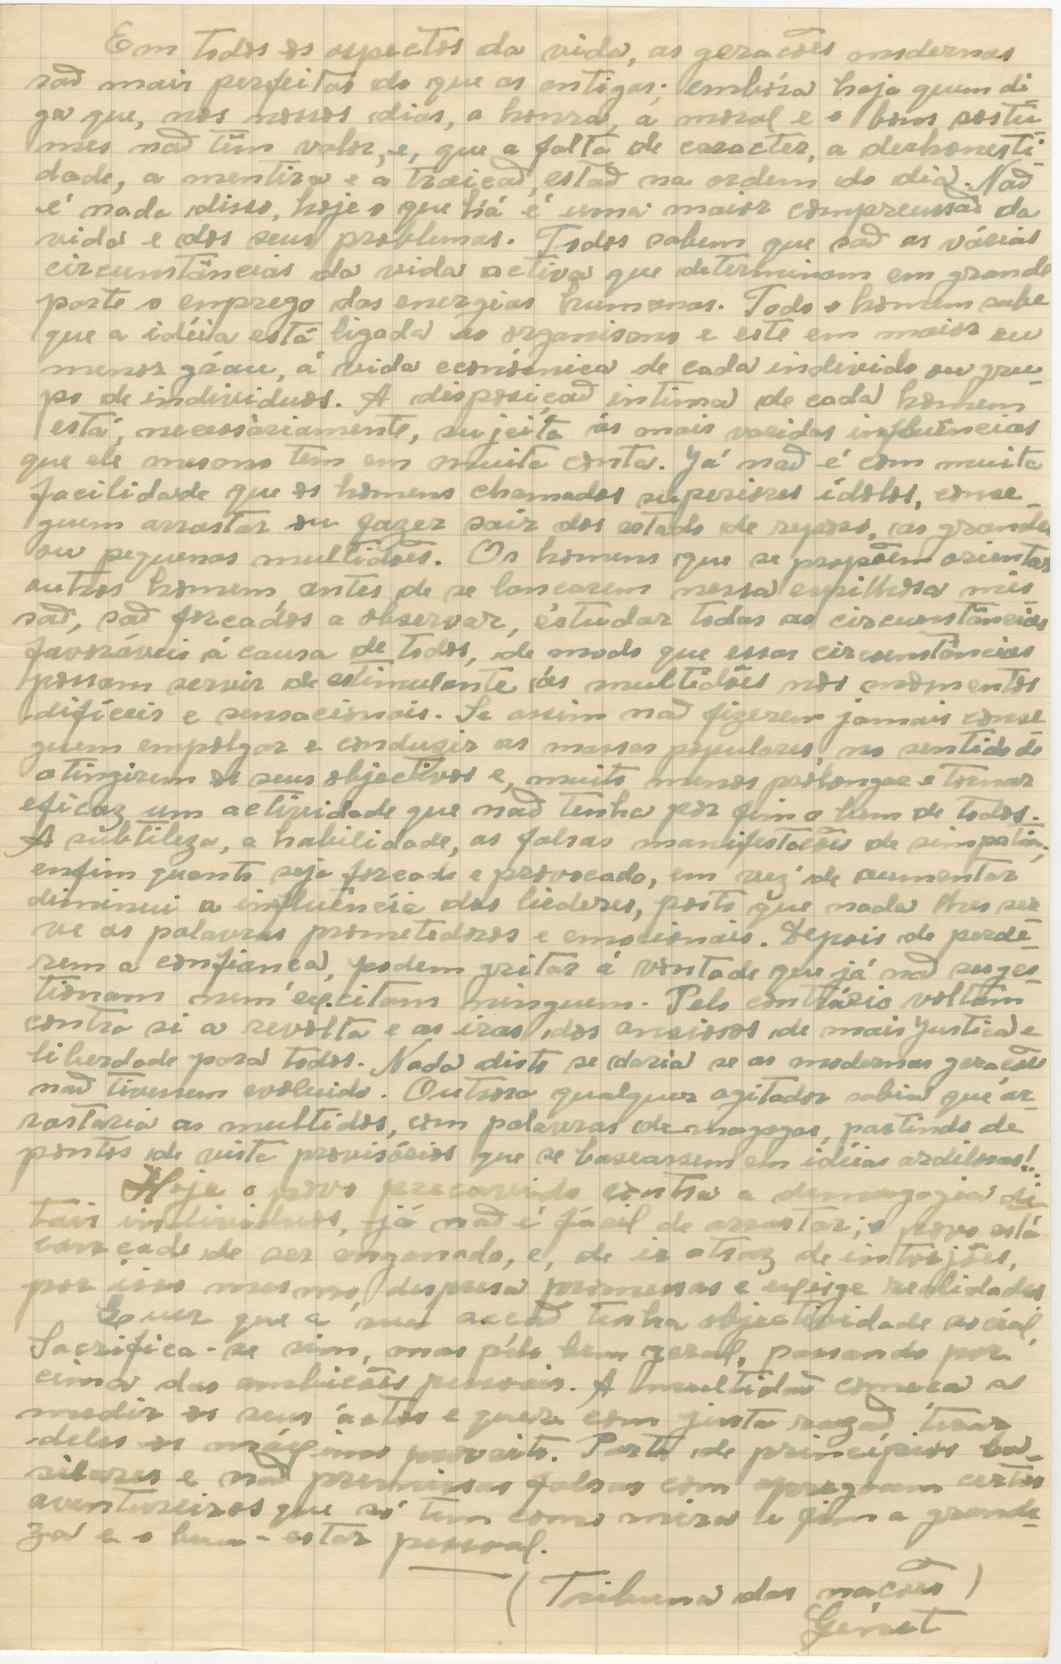 Em todos os aspectos da vida, as gerações modernas
são mais perfeitas do que as antigas; embóra haja quem di
ga que, nos nossos dias, a honra, a moral e o bons costu
mes não têm valor, e, que a falta de caracter, a deshonesti-
dade, a mentira e a traição, estão na ordem do dia. Não
é nada disso, hoje o que há é uma maior compreensão da
vida e dos seus problemas. Todos sabem que são as várias
circunstâncias da vida activa que determinam em grande
parte o emprego das energias humanas. Todo o homem sabe
que a idéia está ligada ao organismo e este em maior ou
menor gráu, á vida económica de cada individo ou gru-
po de individuos. A disposição intima de cada homem
está, necessáriamente, sujeita ás mais varidas influências
que ele mesmo tem em muita conta. Já não é com muita
facilidade que os homens chamados superiores ídolos, conse
guem arrastar ou fazer sair dos estado de repouso, as grandes
ou pequenas multidões. Os homens que se propõem orientar
outros homem, antes de se lançarem nessa espilhosa mis
são, são forçados a observar, estudar todas as circunstâncias
favoráveis á causa de todos, de modo que essas circunstâncias
possam servir de estimulante ás multidões nos momentos
difíceis e sensacionais. Se assim não fizerem jamais conse
guem empolgar e conduzir as massas populares, no sentido de
atingirem os seus objectivos e, muito menos prolongar e tornar
eficaz um actividade que não tenha por fim o bem de todos.
A subtileza, a habilidade, as falsas manifestações de simpatia,
enfim quanto seja forçado e provocado, em vez de aumentar
diminui a influência dos liederes, posto que nada lhes ser
ve as palavras prometedoras e emocionais. Depois de perde-
rem a confiança, podem gritar á vontade que já não suges
tionam nem excitam ninguem. Pelo contrário voltam
contra si a revolta e as iras dos ansiosos de mais justiça e
liberdade para todos. Nada disto se daria se as modernas gerações
não tivessem evoluido. Outrora qualquer agitador sabia que ar
rastaria as multidos, com palavras demagogas, partindo de
pontos de vista provisórios que se baseassem em idéias ardilosas!..
Hoje o povo precavido contra a demagogia de
tais individuos, já não é fácil de arrastar; o povo está
cançado de ser enganado, e, de ir atraz de intrujões,
por isso mesmo, despresa promessas e exige realidades
Quer que a sua acção tenha objectividade social,
Sacrifica-se sim, mas pélo bem geral, passando por
cima das ambições pessoais. A multidão começa a
medir os seus áctos e quere com justa razão tirar
deles os máximo proveito. Parte de princípios ba
silares e não premissas falsas com apregoam certos
aventureiros que só tem como mira e fim a grande-
za e o bem-estar pessoal.
(Tribuna das nações)
Génet